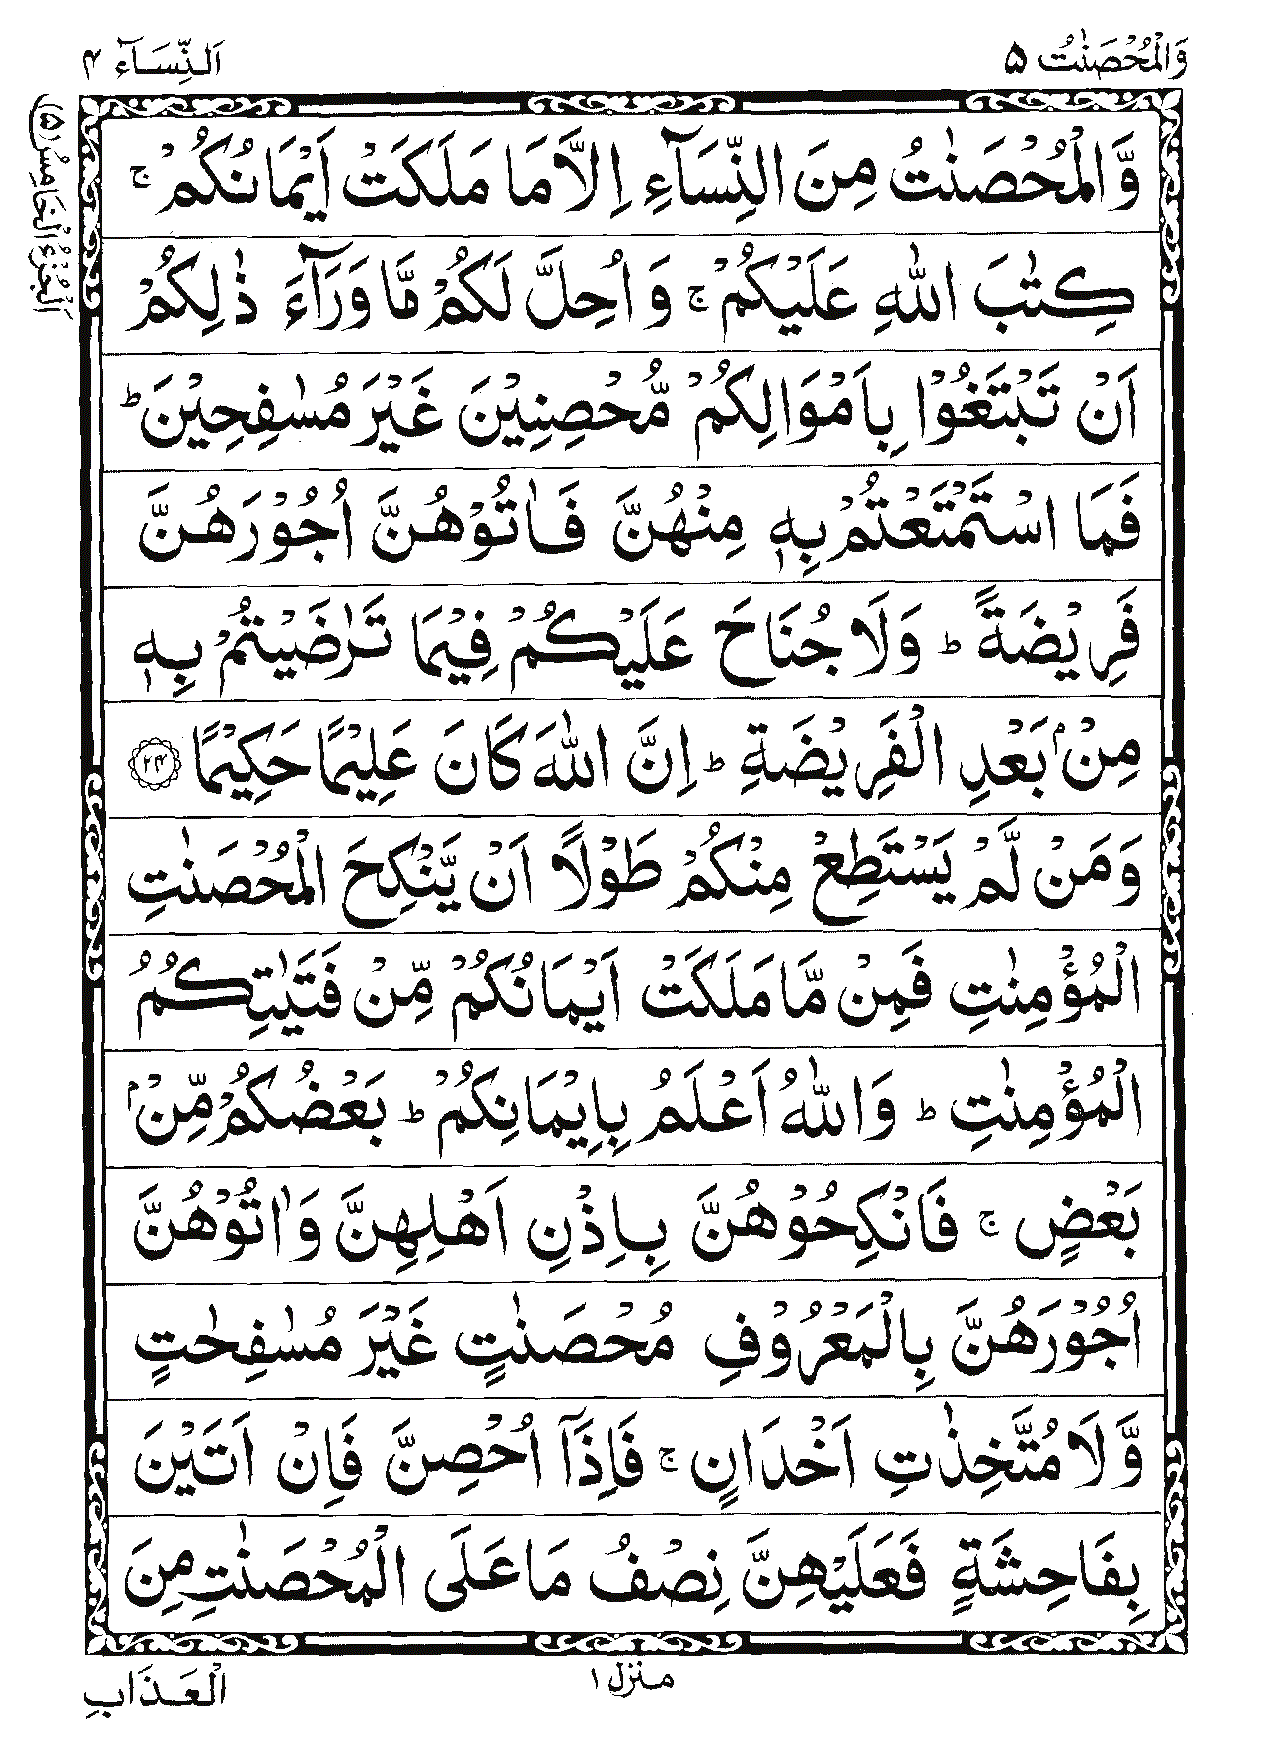 وَالْمُحْصَنٰتُ ۵
اَلنِّسَآء ۴
اَلْجُزْءُ الْخَامِسُ (۵)
وَّالْمُحْصَنٰتُ مِنَ النِّسَآءِ اِلَّا مَا مَلَكَتْ اَيْمَانُكُمْ ۚ
كِتٰبَ اللّٰهِ عَلَيْكُمْ ۚ وَ اُحِلَّ لَكُمْ مَّا وَرَآءَ ذٰلِكُمْ
اَنْ تَبْتَغُوْا بِاَمْوَالِكُمْ مُّحْصِنِيْنَ غَيْرَ مُسٰفِحِيْنَ ؕ
فَمَا اسْتَمْتَعْتُمْ بِهٖ مِنْهُنَّ فَاٰتُوْهُنَّ اُجُوْرَهُنَّ
فَرِيْضَةً ؕ وَلَا جُنَاحَ عَلَيْكُمْ فِيْمَا تَرٰضَيْتُمْ بِهٖ
مِنْۢ بَعْدِ الْفَرِيْضَةِ ؕ اِنَّ اللّٰهَ كَانَ عَلِيْمًا حَكِيْمًا ۲۴
وَمَنْ لَّمْ يَسْتَطِعْ مِنْكُمْ طَوْلًا اَنْ يَّنْكِحَ الْمُحْصَنٰتِ
الْمُؤْمِنٰتِ فَمِنْ مَّا مَلَكَتْ اَيْمَانُكُمْ مِّنْ فَتَيٰتِكُمُ
الْمُؤْمِنٰتِ ؕ وَاللّٰهُ اَعْلَمُ بِاِيْمَانِكُمْ ؕ بَعْضُكُمْ مِّنْۢ
بَعْضٍ ۚ فَانْكِحُوْهُنَّ بِاِذْنِ اَهْلِهِنَّ وَاٰتُوْهُنَّ
اُجُوْرَهُنَّ بِالْمَعْرُوْفِ مُحْصَنٰتٍ غَيْرَ مُسٰفِحٰتٍ
وَّلَا مُتَّخِذٰتِ اَخْدَانٍ ۚ فَاِذَآ اُحْصِنَّ فَاِنْ اَتَيْنَ
بِفَاحِشَةٍ فَعَلَيْهِنَّ نِصْفُ مَا عَلَى الْمُحْصَنٰتِ مِنَ
مـنزل ۱
الْعَـذَابِ